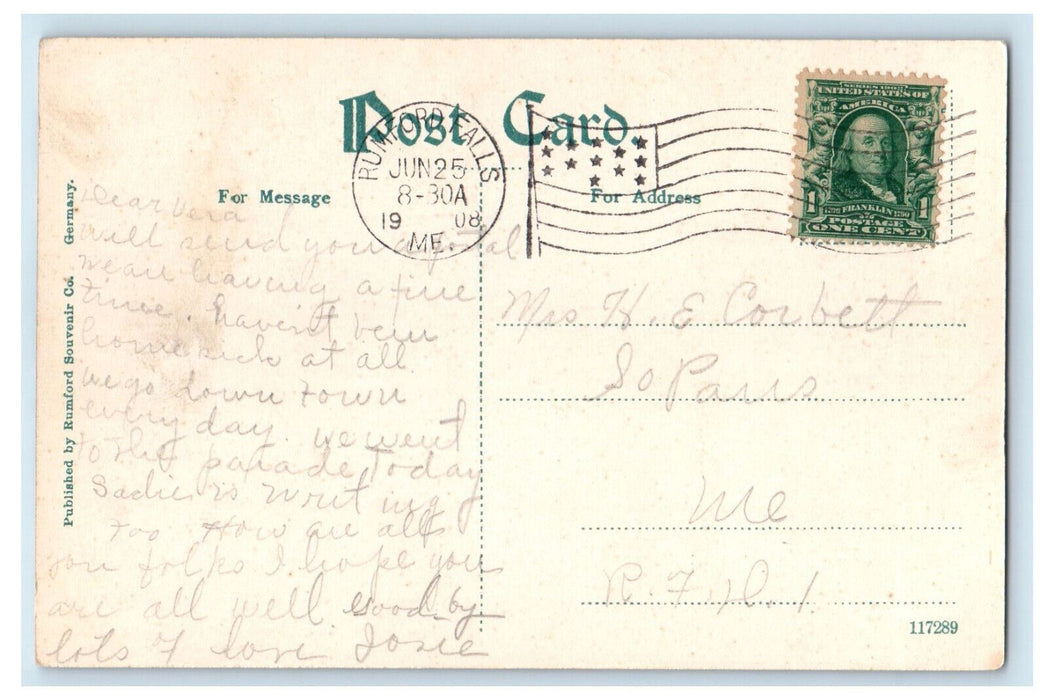 Post Card.
RUMFORD FALLS
JUN 25
8-30A
19 08
ME.
SERIES 1902
UNITED STATES OF
AMERICA
1 FRANKLIN 1
1706 1790
POSTAGE
ONE CENT
For Message
For Address
Published by Rumford Souvenir Co. Germany.
Dear Vera
will send you a postal
we are having a fine
time. haven't been
homesick at all
we go down town
every day. we went
to the parade today
Sadie is writing
too How are all
you folks I hope you
are all well good by
lots of love Josie
Mrs H. E Corbett
So Paris
Me
R. F. D. 1
117289